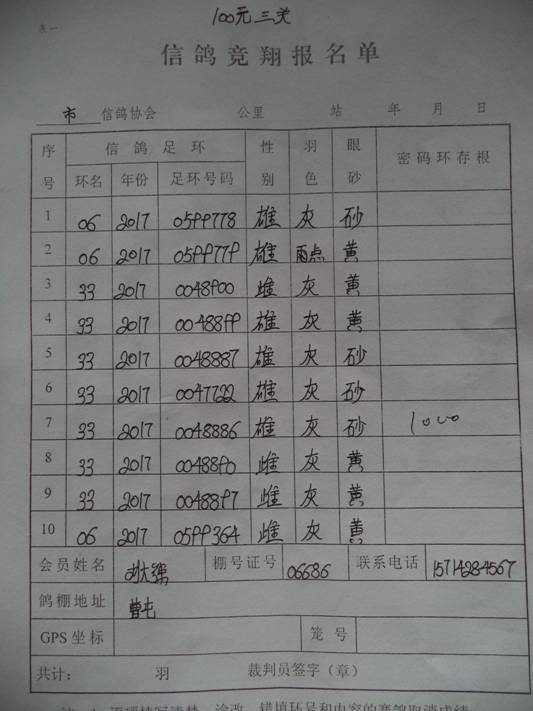 100元 三关
表一
信鸽竞翔报名单
市 信鸽协会 公里 站 年 月 日
序号 信鸽足环 性别 羽色 眼砂 密码环存根
环名 年份 足环号码
1 06 2017 0599778 雄 灰 砂
2 06 2017 0599779 雄 雨点 黄
3 33 2017 0048900 雌 灰 黄
4 33 2017 0048899 雄 灰 黄
5 33 2017 0048887 雄 灰 砂
6 33 2017 0047722 雄 灰 砂
7 33 2017 0048886 雄 灰 砂 1000
8 33 2017 0048890 雌 灰 黄
9 33 2017 0048897 雌 灰 黄
10 06 2017 0599364 雌 灰 黄
会员姓名 棚号证号 06686 联系电话 15714984567
鸽棚地址 曹屯
GPS坐标 笼号
共计： 羽 裁判员签字（章）